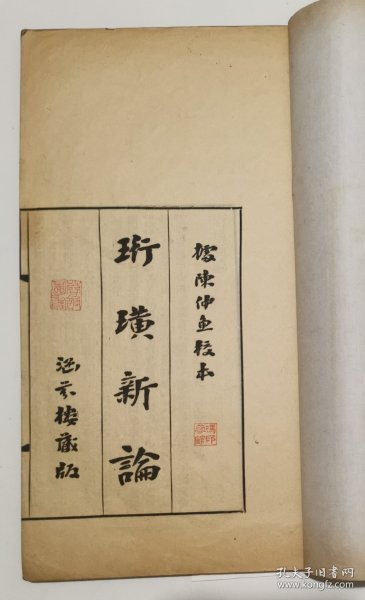 據陳仲魚校本
珩璜新論
涵芬樓藏版
孔夫子旧书网
www.kongfz.com